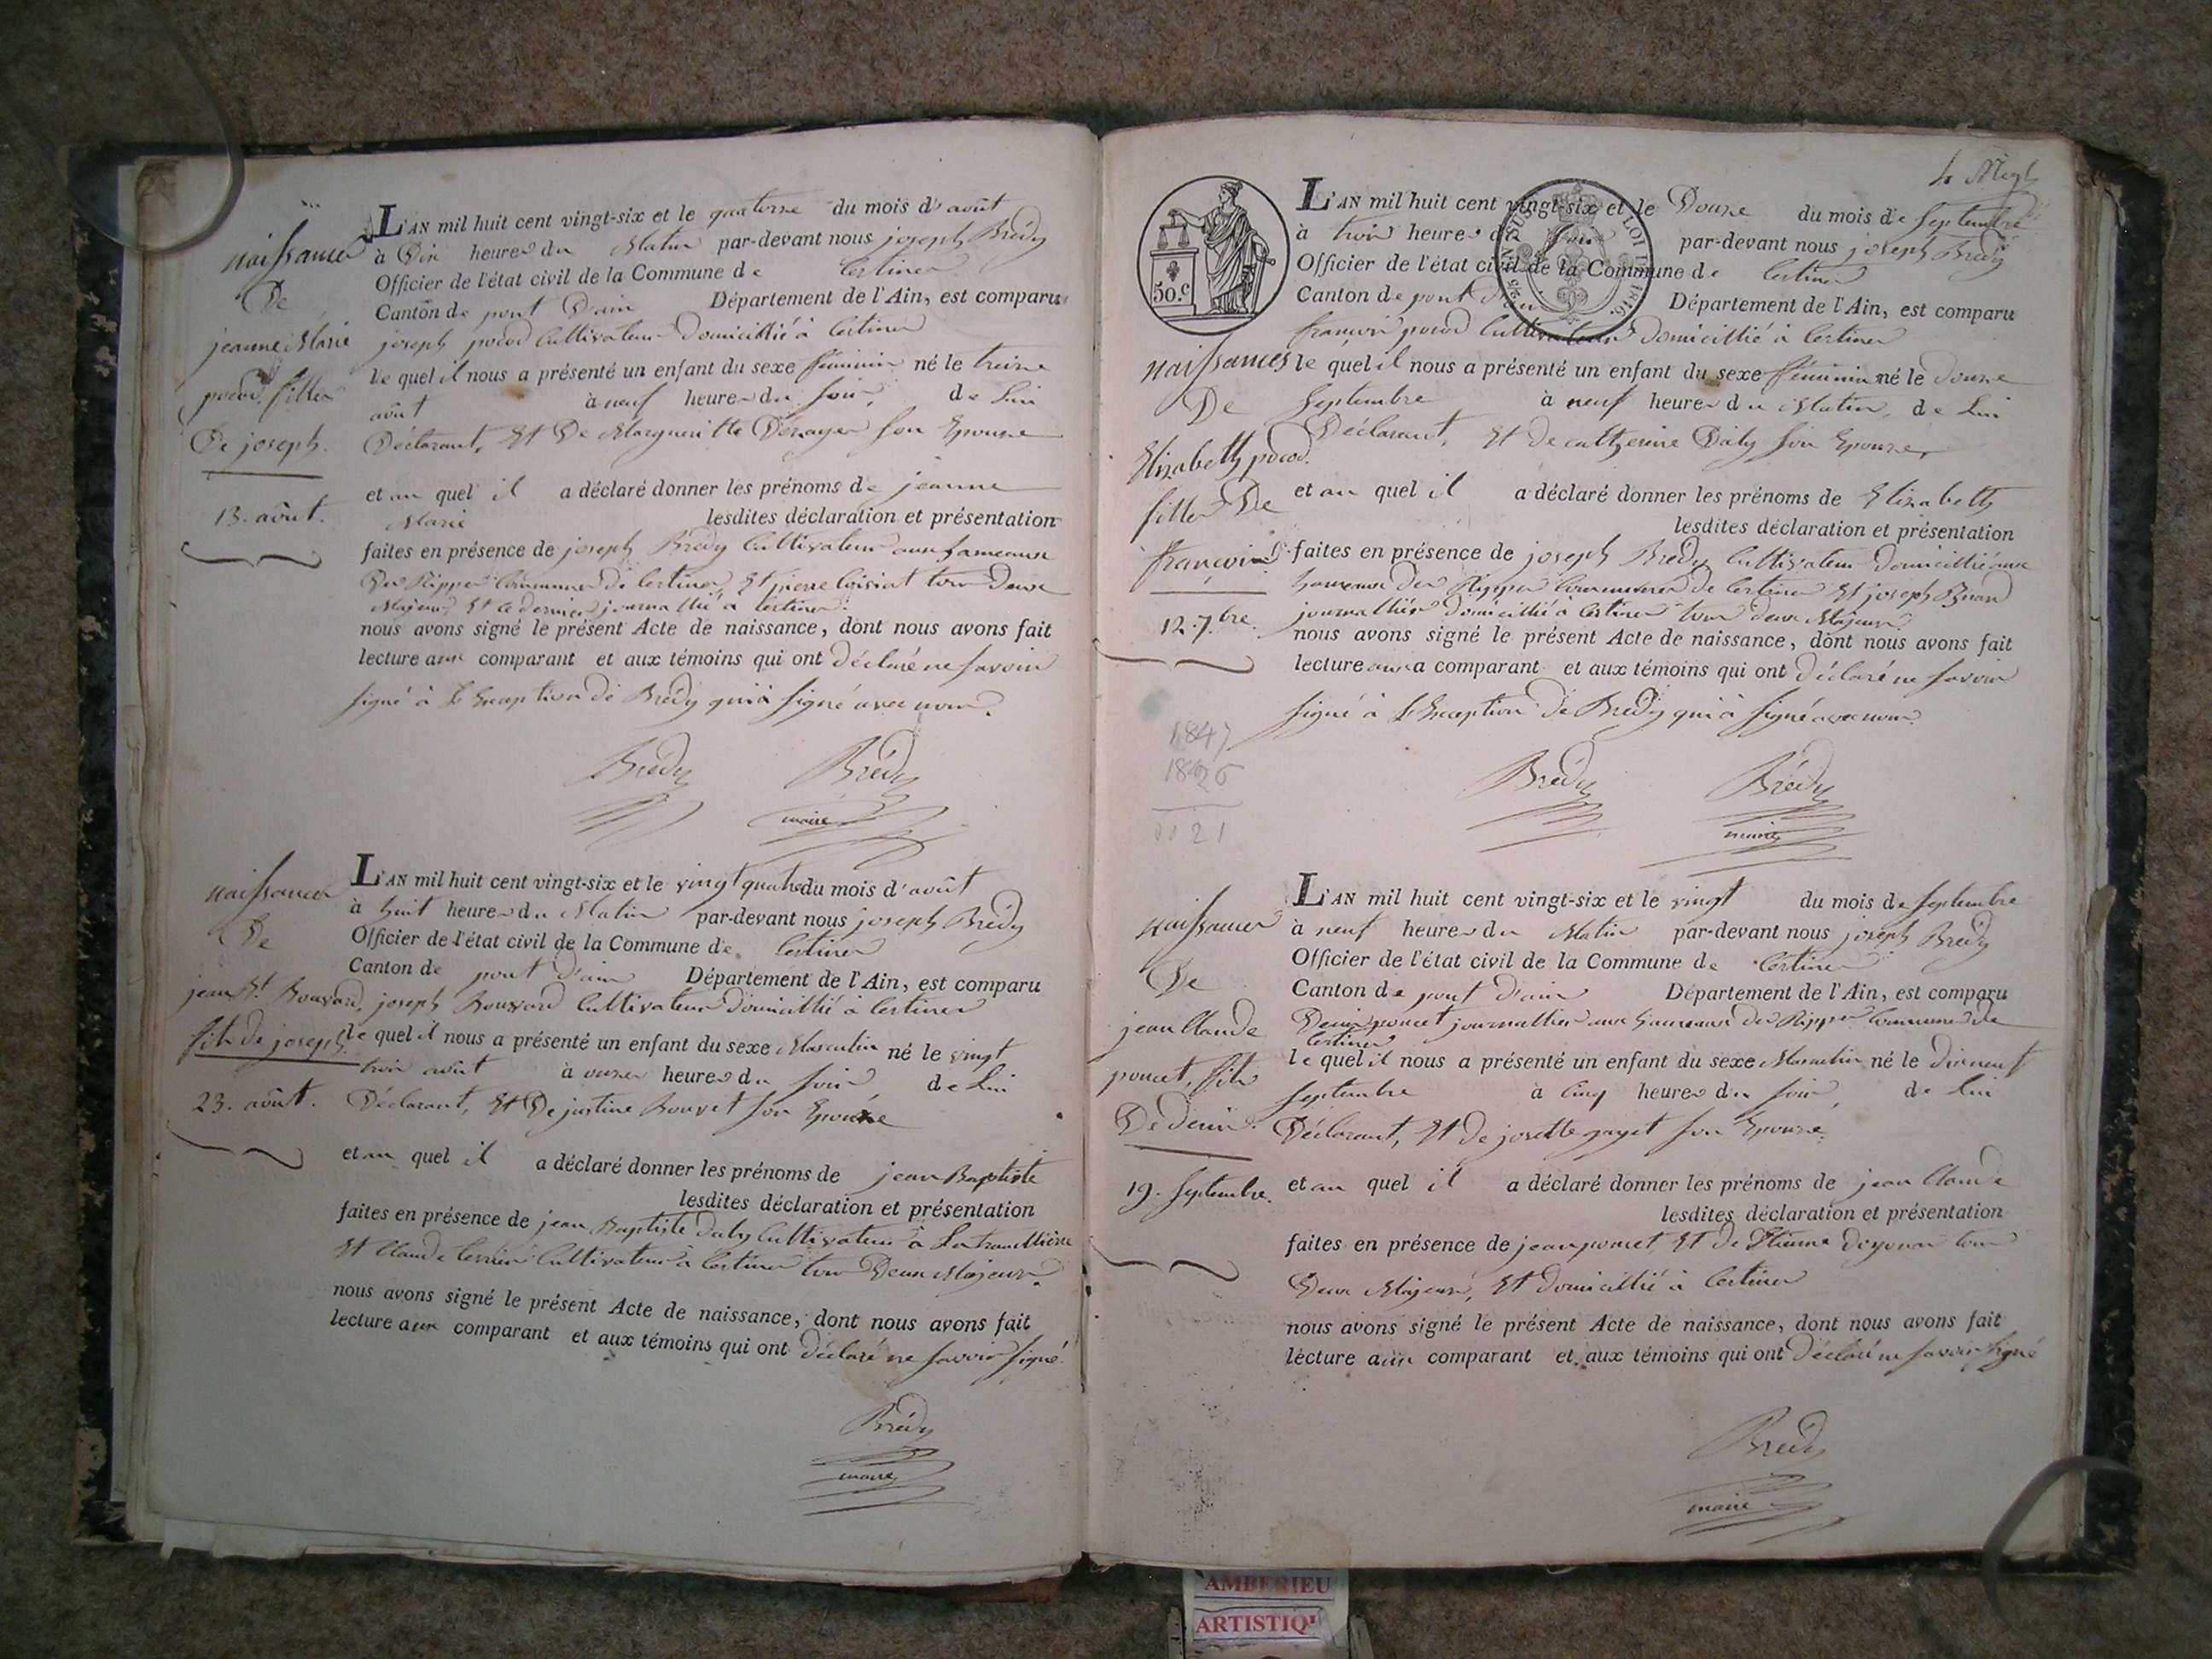 naissance
De
jeanne Marie
pocod, fille
De joseph.
13. août.
L'AN mil huit cent vingt-six et le quatorse du mois d'août
à Dix heures du Matin par-devant nous joseph Brédy
Officier de l'état civil de la Commune de Certines
Canton de pont D'ain Département de l'Ain, est comparu
joseph pocod Cultivateur domicillié à Certines
le quel il nous a présenté un enfant du sexe féminin né le treise
août à neuf heures du soir, de Lui
Déclarant, Et De Margueritte son Epouse
et au quel il a déclaré donner les prénoms de jeanne
Marie lesdites déclaration et présentation
faites en présence de joseph Brédy Cultivateur aux hameaux
Des Rippes Commune de Certines, Et pierre loisiat tous Deux
Majeurs Et ce dernier journallié à Certines.
nous avons signé le présent Acte de naissance, dont nous avons fait
lecture aux comparant et aux témoins qui ont déclaré ne savoir
signé à L'Exception de Brédy qui à signé avec nous.
Brédy Brédy
maire
naissance
De
jean Bt. Bouvard,
fils de joseph
23. août.
L'AN mil huit cent vingt-six et le vingt quatre du mois d'août
à huit heures du Matin par-devant nous joseph Brédy
Officier de l'état civil de la Commune de Certines
Canton de pont d'ain Département de l'Ain, est comparu
joseph Bouvard Cultivateur domicillié à Certines
le quel il nous a présenté un enfant du sexe Masculin né le vingt
trois août à onze heures du soir de Lui
Déclarant, Et De justine Bouvet son Epouse
et au quel il a déclaré donner les prénoms de jean Baptiste
lesdites déclaration et présentation
faites en présence de jean Baptiste Daby Cultivateur à La tranclière
Et Claude terrier Cultivateur à Certines tous Deux Majeurs.
nous avons signé le présent Acte de naissance, dont nous avons fait
lecture aux comparant et aux témoins qui ont déclaré ne savoir signé.
Brédy
maire
50.c
LOI 1816.
naissances
De
Elizabeth pocod.
fille De
françois
12. 7.bre
1847
1826
0021
L'AN mil huit cent vingt-six et le Douze du mois de Septembre
à trois heures du soir par-devant nous joseph Brédy
Officier de l'état civil de la Commune de Certines
Canton de pont d'ain Département de l'Ain, est comparu
françois pocod Cultivateur domicillié à Certines
le quel il nous a présenté un enfant du sexe féminin né le douze
Septembre à neuf heures du Matin, de Lui
Déclarant, Et de catherine Daby son Epouse,
et au quel il a déclaré donner les prénoms de Elizabeth
lesdites déclaration et présentation
faites en présence de joseph Brédy Cultivateur domicillié aux
hameaux des Rippes Commune de Certines Et joseph
journallier domicillié à Certines tous deux Majeurs.
nous avons signé le présent Acte de naissance, dont nous avons fait
lecture aux comparant et aux témoins qui ont déclaré ne savoir
signé à L'Exception de Brédy qui à signé avec nous.
Brédy Brédy
maire
naissance
De
jean Claude
poncet, fils
De denis.
19. Septembre.
L'AN mil huit cent vingt-six et le vingt du mois de Septembre
à neuf heures du Matin par-devant nous joseph Brédy
Officier de l'état civil de la Commune de Certines
Canton de pont d'ain Département de l'Ain, est comparu
Denis poncet journallier aux hameaux des Rippes Commune de
Certines
le quel il nous a présenté un enfant du sexe Masculin né le dixneuf
Septembre à Cinq heures du soir, de Lui
Déclarant, Et de josette gayet son Epouse.
et au quel il a déclaré donner les prénoms de jean Claude
lesdites déclaration et présentation
faites en présence de jean poncet, Et de Etienne tous
Deux Majeurs, Et domicillié à Certines
nous avons signé le présent Acte de naissance, dont nous avons fait
lecture aux comparant et aux témoins qui ont déclaré ne savoir signé
Brédy
maire
AMBERIEU
ARTISTIQ